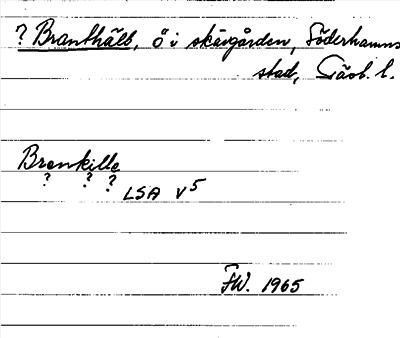 ? Branthäll, ö i skärgården, Söderhamns
stad, Gävb. l.
Brenkille
? ? ?
LSA V5
FW. 1965